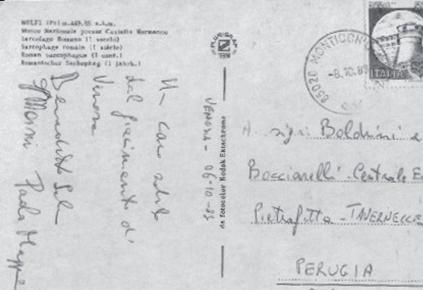 MELFI (Pz) m.
Museo Nazionale presso Castello Normanno
Sarcofago Romano (I secolo)
Sarcophage romain (I siècle)
Roman sarcophagus (I cent.)
Romanischer Sarkophag (I Jahrh.)
Un caro saluto
dal giacimento di
Venosa
Benedetto
Paola
VENOSA - 06-10-83
da fotocolor Kodak Ektachrome
85020 MONTICCHIO
-8.10.83
ITALIA
A. sigg. Boldrini e
Boscianelli - Centrale E
Pietrafitta - TAVERNELLE
PERUGIA